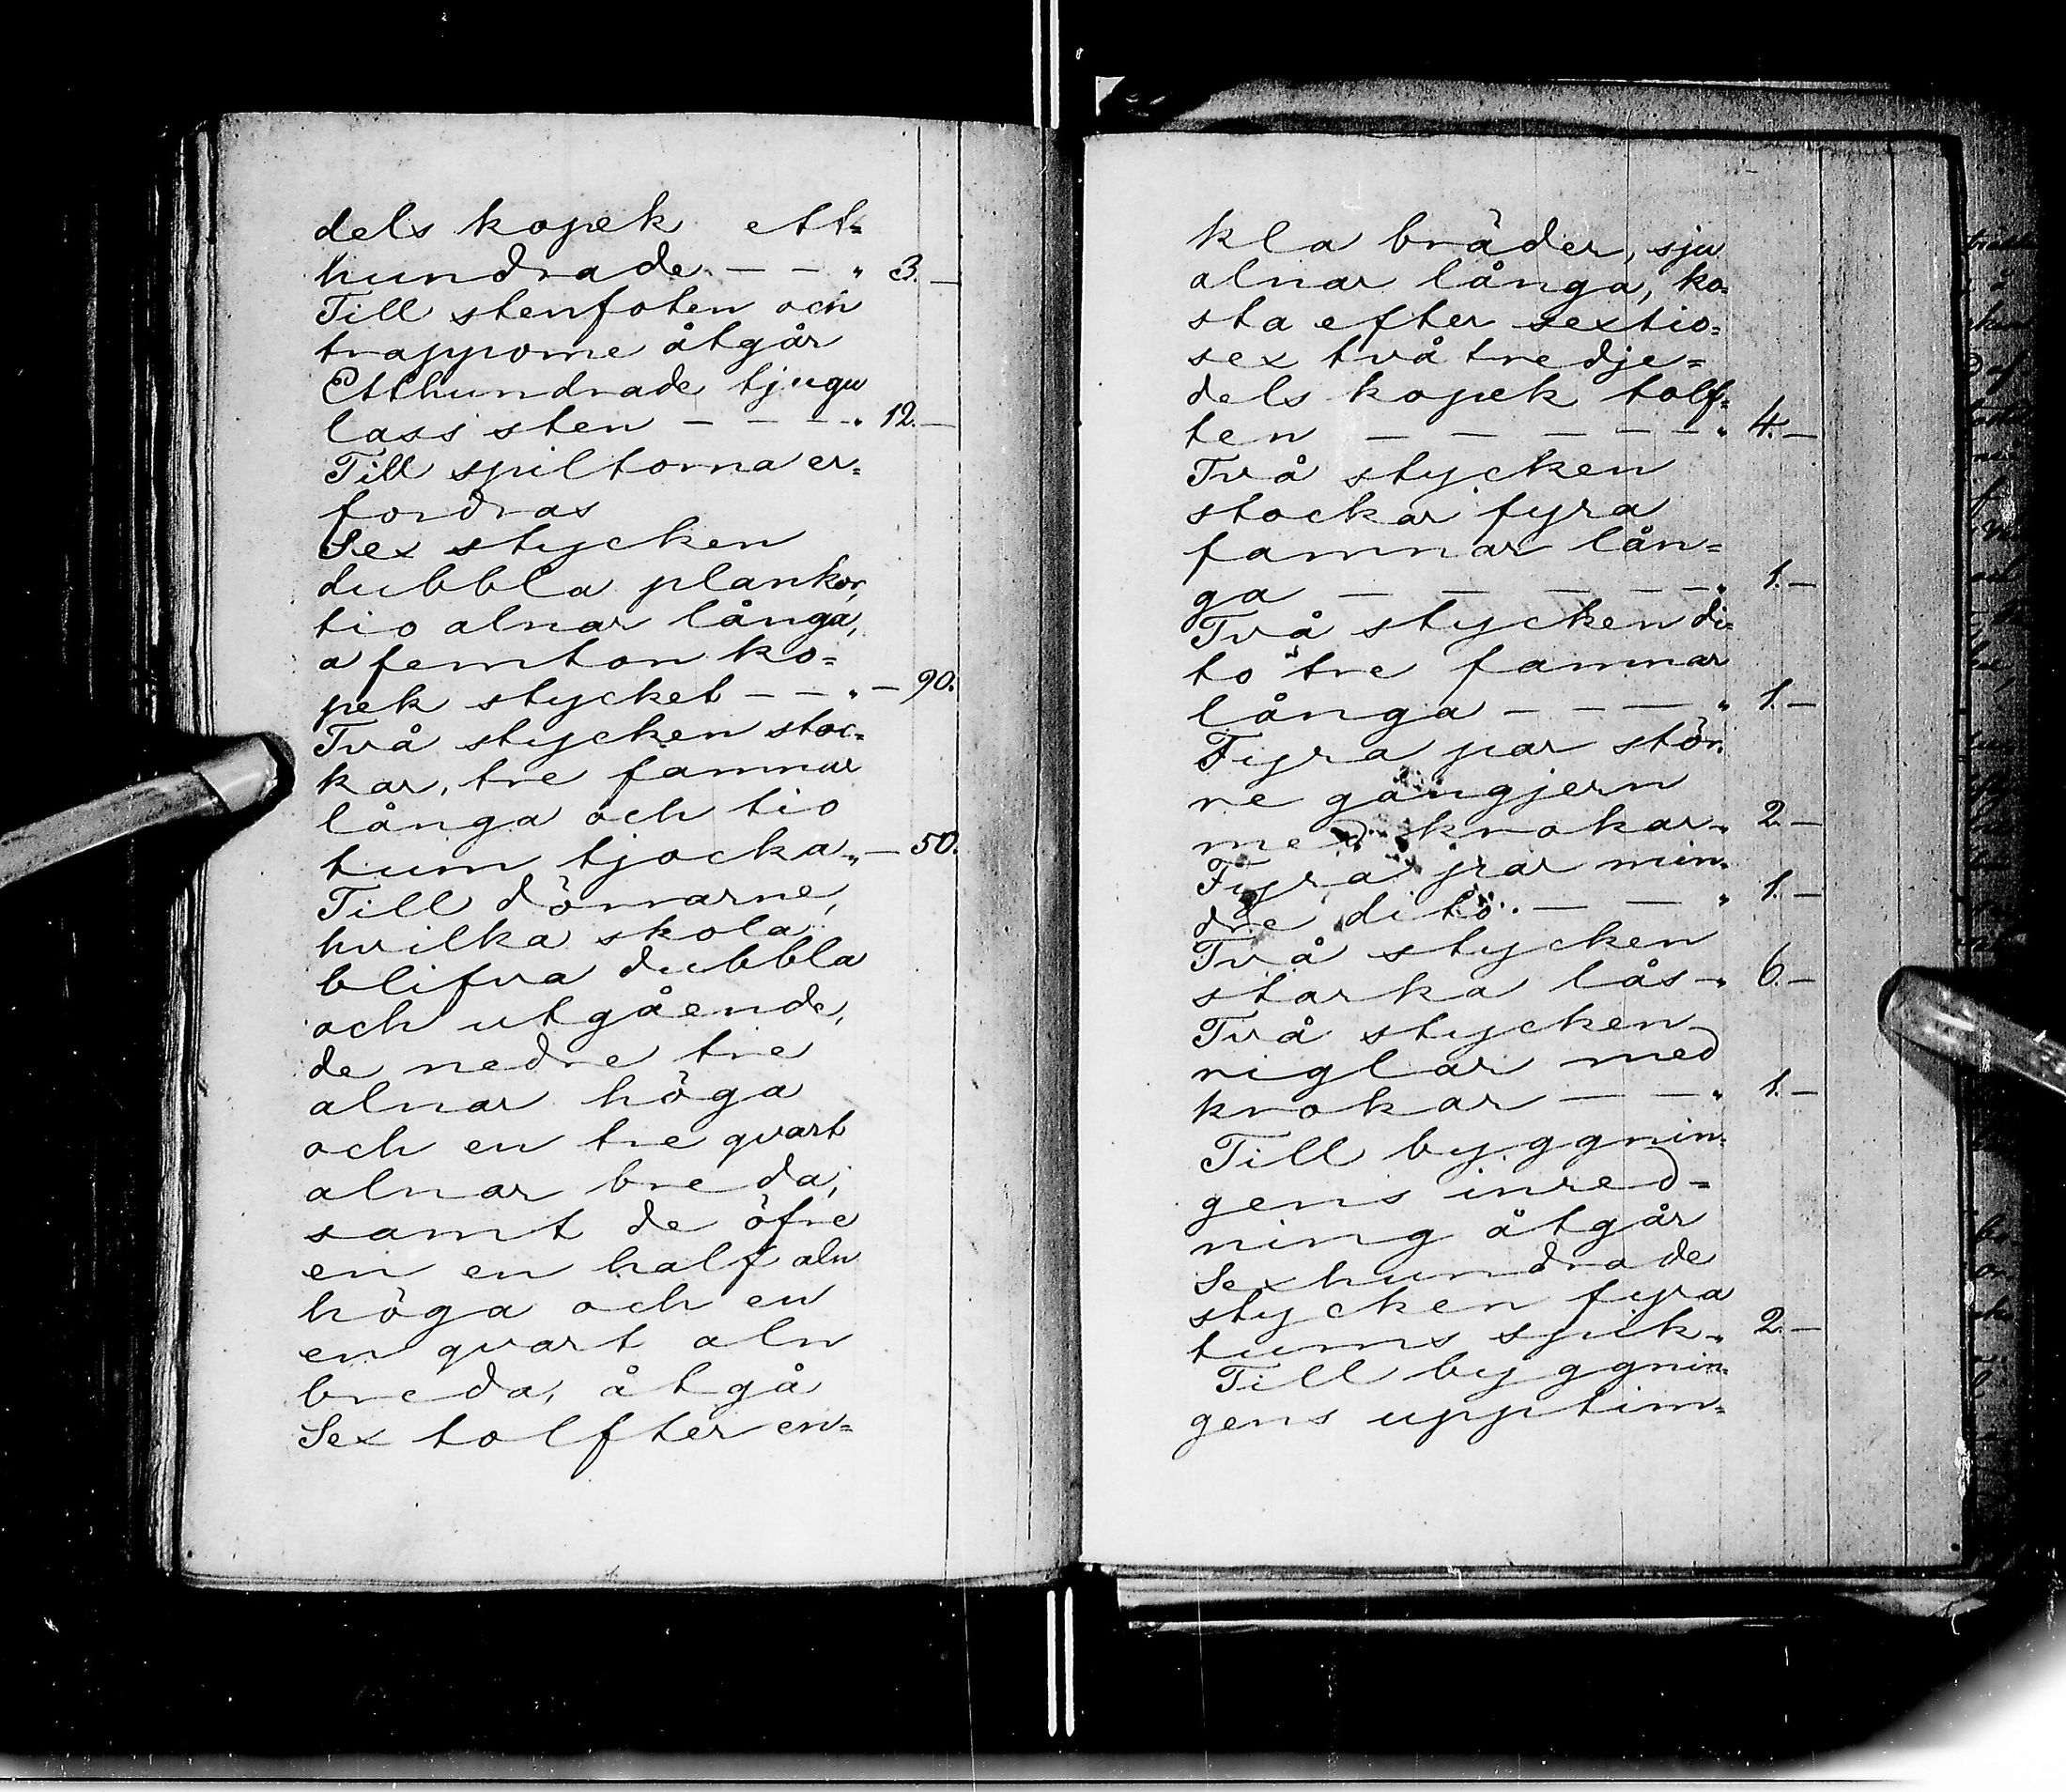 dels kopek ett=
hundrade. — — „ 3. —
Till stenfoten och
trapporne åtgår
Etthundrade tjugu
lass sten — — — „ 12. —
Till spiltorna er=
fordras
Sex stycken
dubbla plankor,
tio alnar långa,
a femton ko=
pek stycket — — „ — 90.
Två stycken stoc=
kar, tre famnar
långa och tio
tum tjocka „ — 50.
Till dörrarne,
hvilka skola
blifva dubbla
och utgående,
de nedre tre
alnar höga
och en tre qvart
alnar breda,
samt de öfre
en en half aln
höga och en
en qvart aln
breda, åtgå
Sex tolfter en=
kla bräder, sju
alnar långa, ko=
sta efter sextio=
sex två tredje=
dels kopek tolf=
ten — — — — — „ 4. —
Två stycken
stockar fyra
famnar lån=
ga — — — — — „ 1. —
Två stycken di=
to tre famnar
långa — — — „ 1. —
Fyra par stör=
re gångjern
med krokar „ 2 —
Fyra par min=
dre dito. — — „ 1. —
Två stycken
starka lås — „ 6. —
Två stycken
riglar med
krokar — — „ 1. —
Till byggnin=
gens inred=
ning åtgår
Sexhundrade
stycken fyra
tums spik „ 2. —
Till byggnin=
gens upptim=